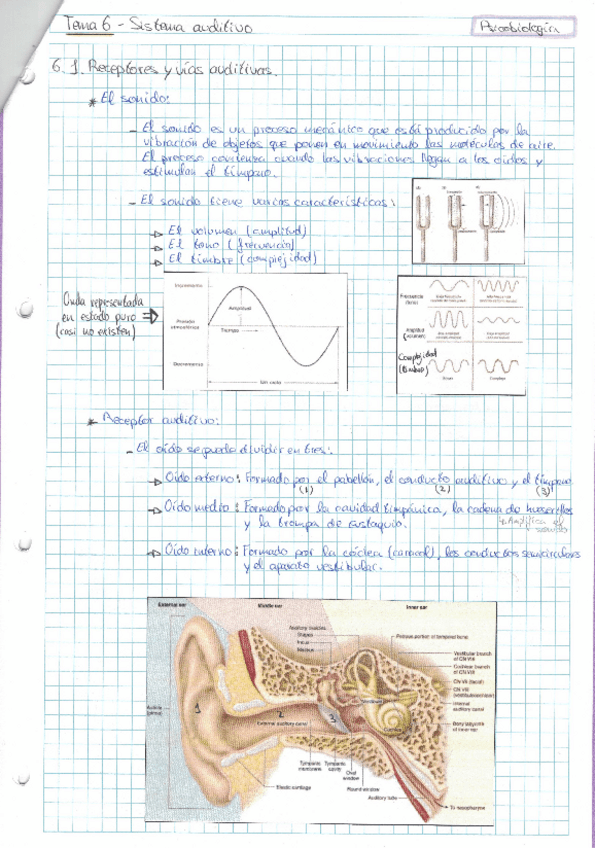 Tema 6 - Sistema auditivo
Psicobiología
6.1. Receptores y vías auditivas.
* El sonido:
- El sonido es un proceso mecánico que está producido por la
vibración de objetos que ponen en movimiento las moléculas de aire.
El proceso comienza cuando las vibraciones llegan a los oídos y
estimulan el tímpano.
- El sonido tiene varias características:
El volumen (amplitud)
El tono (frecuencia)
El timbre (complejidad)
Onda representada
en estado puro
(casi no existen)
Incrementos
Amplitud
Presión
atmosférica
Tiempo
Decrementos
Un ciclo
Frecuencia
(tono)
Amplitud
(volumen)
Complejidad
(timbre)
* Receptor auditivo:
- El oído se puede dividir en tres:
Oído externo: Formado por el pabellón, el conducto auditivo y el tímpano
(1) (2) (3)
Oído medio: Formado por la cavidad timpánica, la cadena de huesecillos
y la trompa de Eustaquio.
Amplifica el
sonido
Oído interno: Formado por la cóclea (caracol), los conductos semicirculares
y el aparato vestibular.
External ear Middle ear Inner ear
Auditory ossicles
Stapes
Incus
Malleus
Petrous portion of temporal bone
Vestibular branch
of CN VIII
Cochlear branch
of CN VIII
CN VII (facial)
CN VIII
(vestibulocochlear)
Internal
auditory canal
Bony labyrinth
of inner ear
Vestibule
Cochlea
External auditory canal
1
2
3
Tympanic
membrane
Tympanic
cavity
Oval
window
Round window
Elastic cartilage
Auditory tube
To nasopharynx